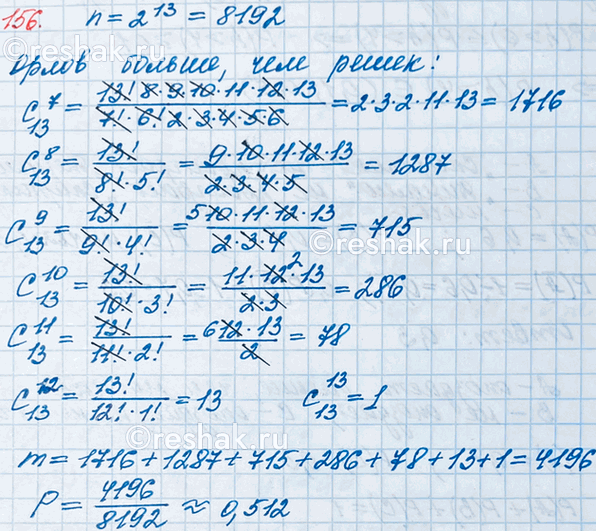 156. n = 2^13 = 8192
Орлов больше, чем решек:
C_13^7 = 13! 8·9·10·11·12·13 / 7!·6! 2·3·4·5·6 = 2·3·2·11·13 = 1716
C_13^8 = 13! / 8!·5! = 9·10·11·12·13 / 2·3·4·5 = 1287
C_13^9 = 13! / 9!·4! = 5 10·11·12·13 / 2·3·4 = 715
C_13^10 = 13! / 10!·3! = 11·12^2·13 / 2·3 = 286
C_13^11 = 13! / 11!·2! = 6 12·13 / 2 = 78
C_13^12 = 13! / 12!·1! = 13 C_13^13 = 1
m = 1716 + 1287 + 715 + 286 + 78 + 13 + 1 = 4196
P = 4196 / 8192 ≈ 0,512
©reshak.ru